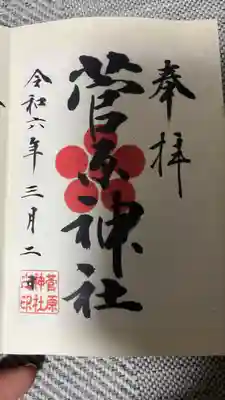 奉拝
菅原神社
令和六年三月二日
菅原
神社